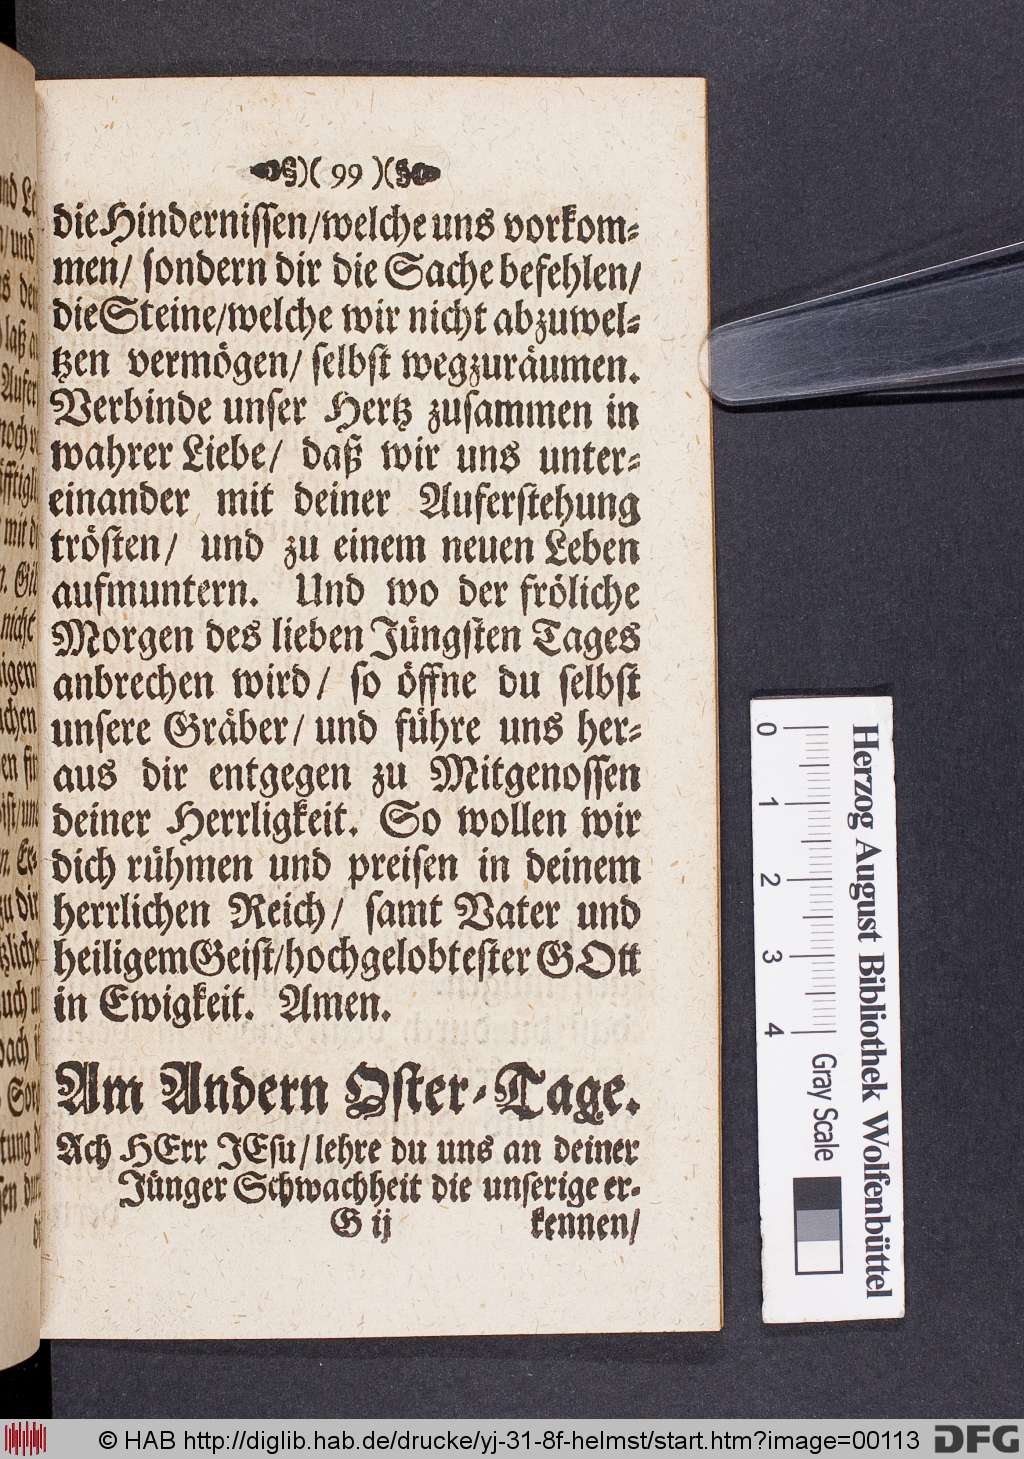 )( 99 )(
die Hindernissen/welche uns vorkom-
men/ sondern dir die Sache befehlen/
die Steine/welche wir nicht abzuwel-
tzen vermögen/ selbst wegzuräumen.
Verbinde unser Hertz zusammen in
wahrer Liebe/ daß wir uns unter-
einander mit deiner Auferstehung
trösten/ und zu einem neuen Leben
aufmuntern. Und wo der fröliche
Morgen des lieben Jüngsten Tages
anbrechen wird/ so öffne du selbst
unsere Gräber/ und führe uns her-
aus dir entgegen zu Mitgenossen
deiner Herrligkeit. So wollen wir
dich rühmen und preisen in deinem
herrlichen Reich/ samt Vater und
heiligem Geist/hochgelobtester GOtt
in Ewigkeit. Amen.
Am Andern Oster-Tage.
Ach HErr JEsu/ lehre du uns an deiner
Jünger Schwachheit die unserige er-
G ij kennen/
0 1 2 3 4 Gray Scale
Herzog August Bibliothek Wolfenbüttel
© HAB http://diglib.hab.de/drucke/yj-31-8f-helmst/start.htm?image=00113 DFG